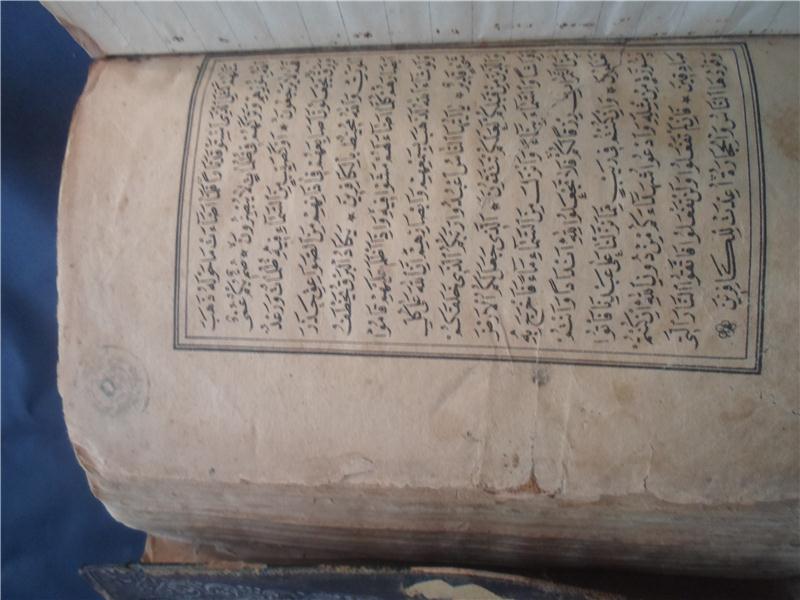 مَثَلُهُمْ كَمَثَلِ الَّذِي اسْتَوْقَدَ نَارًا فَلَمَّا أَضَاءَتْ مَا حَوْلَهُ ذَهَبَ
اللهُ بِنُورِهِمْ وَتَرَكَهُمْ فِي ظُلُمَاتٍ لَا يُبْصِرُونَ * صُمٌّ بُكْمٌ عُمْيٌ
فَهُمْ لَا يَرْجِعُونَ * أَوْ كَصَيِّبٍ مِنَ السَّمَاءِ فِيهِ ظُلُمَاتٌ وَرَعْدٌ
وَبَرْقٌ يَجْعَلُونَ أَصَابِعَهُمْ فِي آذَانِهِمْ مِنَ الصَّوَاعِقِ حَذَرَ
الْمَوْتِ وَاللهُ مُحِيطٌ بِالْكَافِرِينَ * يَكَادُ الْبَرْقُ يَخْطَفُ
أَبْصَارَهُمْ كُلَّمَا أَضَاءَ لَهُمْ مَشَوْا فِيهِ وَإِذَا أَظْلَمَ عَلَيْهِمْ قَامُوا
وَلَوْ شَاءَ اللهُ لَذَهَبَ بِسَمْعِهِمْ وَأَبْصَارِهِمْ إِنَّ اللهَ عَلَى كُلِّ
شَيْءٍ قَدِيرٌ * يَا أَيُّهَا النَّاسُ اعْبُدُوا رَبَّكُمُ الَّذِي خَلَقَكُمْ
وَالَّذِينَ مِنْ قَبْلِكُمْ لَعَلَّكُمْ تَتَّقُونَ * الَّذِي جَعَلَ لَكُمُ الْأَرْضَ
فِرَاشًا وَالسَّمَاءَ بِنَاءً وَأَنْزَلَ مِنَ السَّمَاءِ مَاءً فَأَخْرَجَ بِهِ
مِنَ الثَّمَرَاتِ رِزْقًا لَكُمْ فَلَا تَجْعَلُوا لِلهِ أَنْدَادًا وَأَنْتُمْ
تَعْلَمُونَ * وَإِنْ كُنْتُمْ فِي رَيْبٍ مِمَّا نَزَّلْنَا عَلَى عَبْدِنَا فَأْتُوا
بِسُورَةٍ مِنْ مِثْلِهِ وَادْعُوا شُهَدَاءَكُمْ مِنْ دُونِ اللهِ إِنْ كُنْتُمْ
صَادِقِينَ * فَإِنْ لَمْ تَفْعَلُوا وَلَنْ تَفْعَلُوا فَاتَّقُوا النَّارَ الَّتِي
وَقُودُهَا النَّاسُ وَالْحِجَارَةُ أُعِدَّتْ لِلْكَافِرِينَ